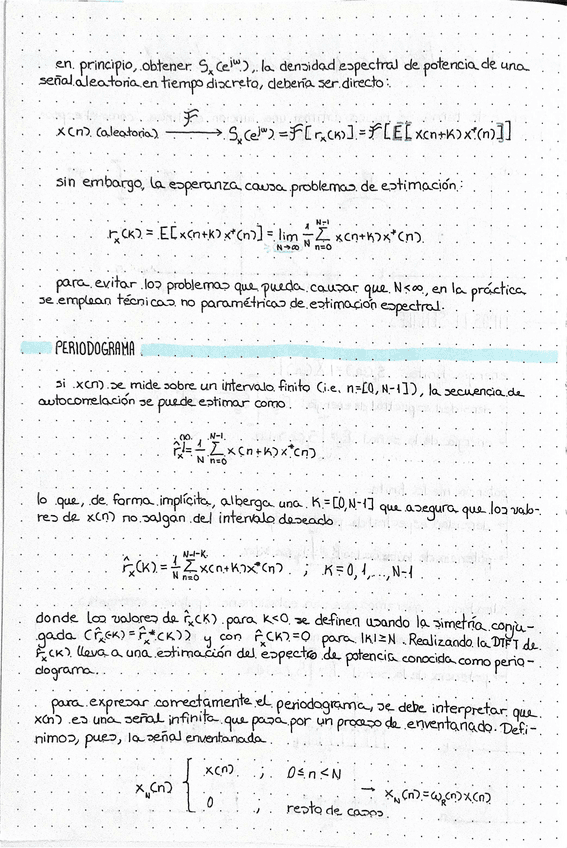 en principio, obtener Sₓ(e^jω), la densidad espectral de potencia de una
señal aleatoria en tiempo discreto, debería ser directo:
x(n) (aleatoria) —ℱ→ Sₓ(e^jω) = ℱ[rₓ(k)] = ℱ[E[x(n+k)x*(n)]]
sin embargo, la esperanza causa problemas de estimación:
rₓ(k) = E[x(n+k)x*(n)] = lim_{N→∞} 1/N Σ_{n=0}^{N-1} x(n+k)x*(n)
para evitar los problemas que pueda causar que N<∞, en la práctica
se emplean técnicas no paramétricas de estimación espectral.
PERIODOGRAMA
si x(n) se mide sobre un intervalo finito (i.e. n=[0, N-1]), la secuencia de
autocorrelación se puede estimar como
no
r̂ₓ = 1/N Σ_{n=0}^{N-1} x(n+k)x*(n)
lo que, de forma implícita, alberga una K=[0,N-1] que asegura que los valo-
res de x(n) no salgan del intervalo deseado
r̂ₓ(k) = 1/N Σ_{n=0}^{N-1-K} x(n+k)x*(n) ; K=0,1,...,N-1
donde los valores de r̂ₓ(k) para k<0 se definen usando la simetría conju-
gada (r̂ₓ(-k) = r̂ₓ*(k)) y con r̂ₓ(k)=0 para |k|≥N. Realizando la DTFT de
r̂ₓ(k) lleva a una estimación del espectro de potencia conocida como perio-
dograma.
para expresar correctamente el periodograma, se debe interpretar que
x(n) es una señal infinita que pasa por un proceso de enventanado. Defi-
nimos, pues, la señal enventanada
x_N(n) { x(n) ; 0≤n<N
0 , resto de casos → x_N(n) = ω_R(n)x(n)